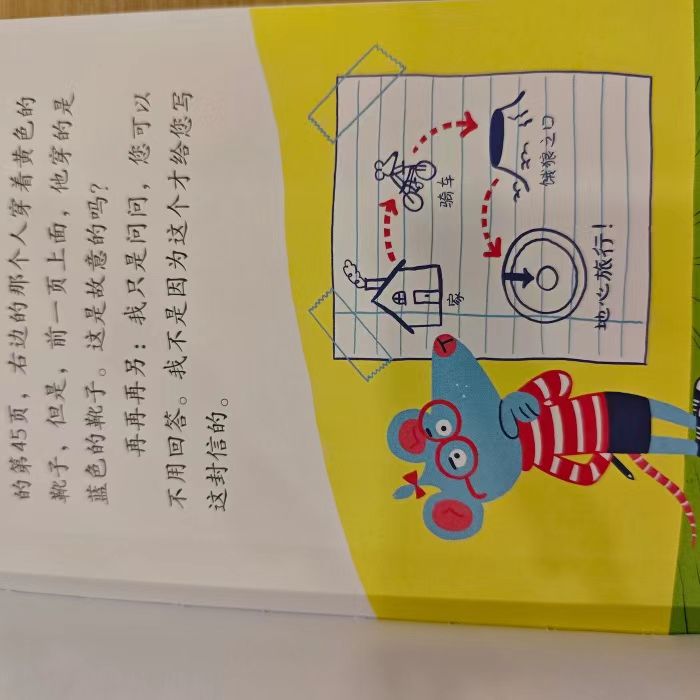 的第45页，右边的那个人穿着黄色的
靴子，但是，前一页上面，他穿的是
蓝色的靴子。这是故意的吗？
再再再另：我只是问问，您可以
不用回答。我不是因为这个才给您写
这封信的。
家
骑车
饿狼之口
地心旅行！